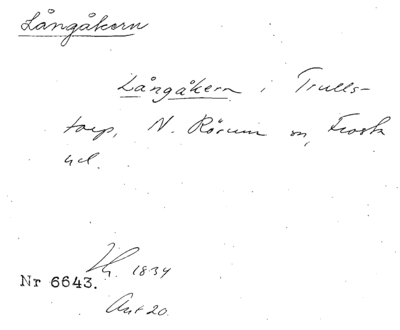 Långåkern
Långåkern i Trulls-
torp, N. Rörum sn, Frosta
hd.
Nr 6643. 1834
Akt 20.